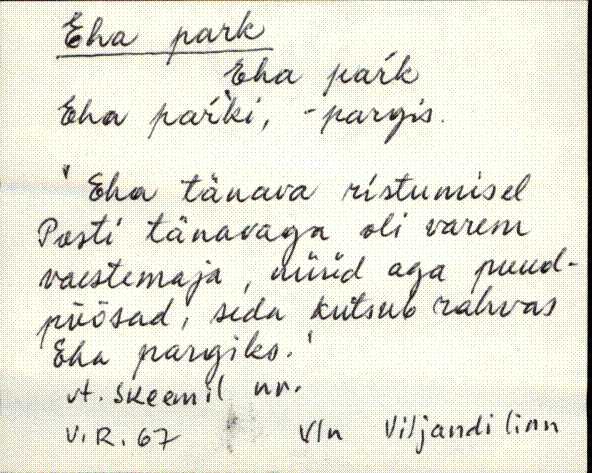 Eha park
'Eha paŕk
Eha paŕki, -pargis.
" Eha tänava ristumisel
Posti tänavaga oli varem
vaestemaja, nüüd aga puud-
põõsad, seda kutsub rahvas
Eha pargiks."
Vt. skeemil nr.
V.R. 67 Vln Viljandi linn